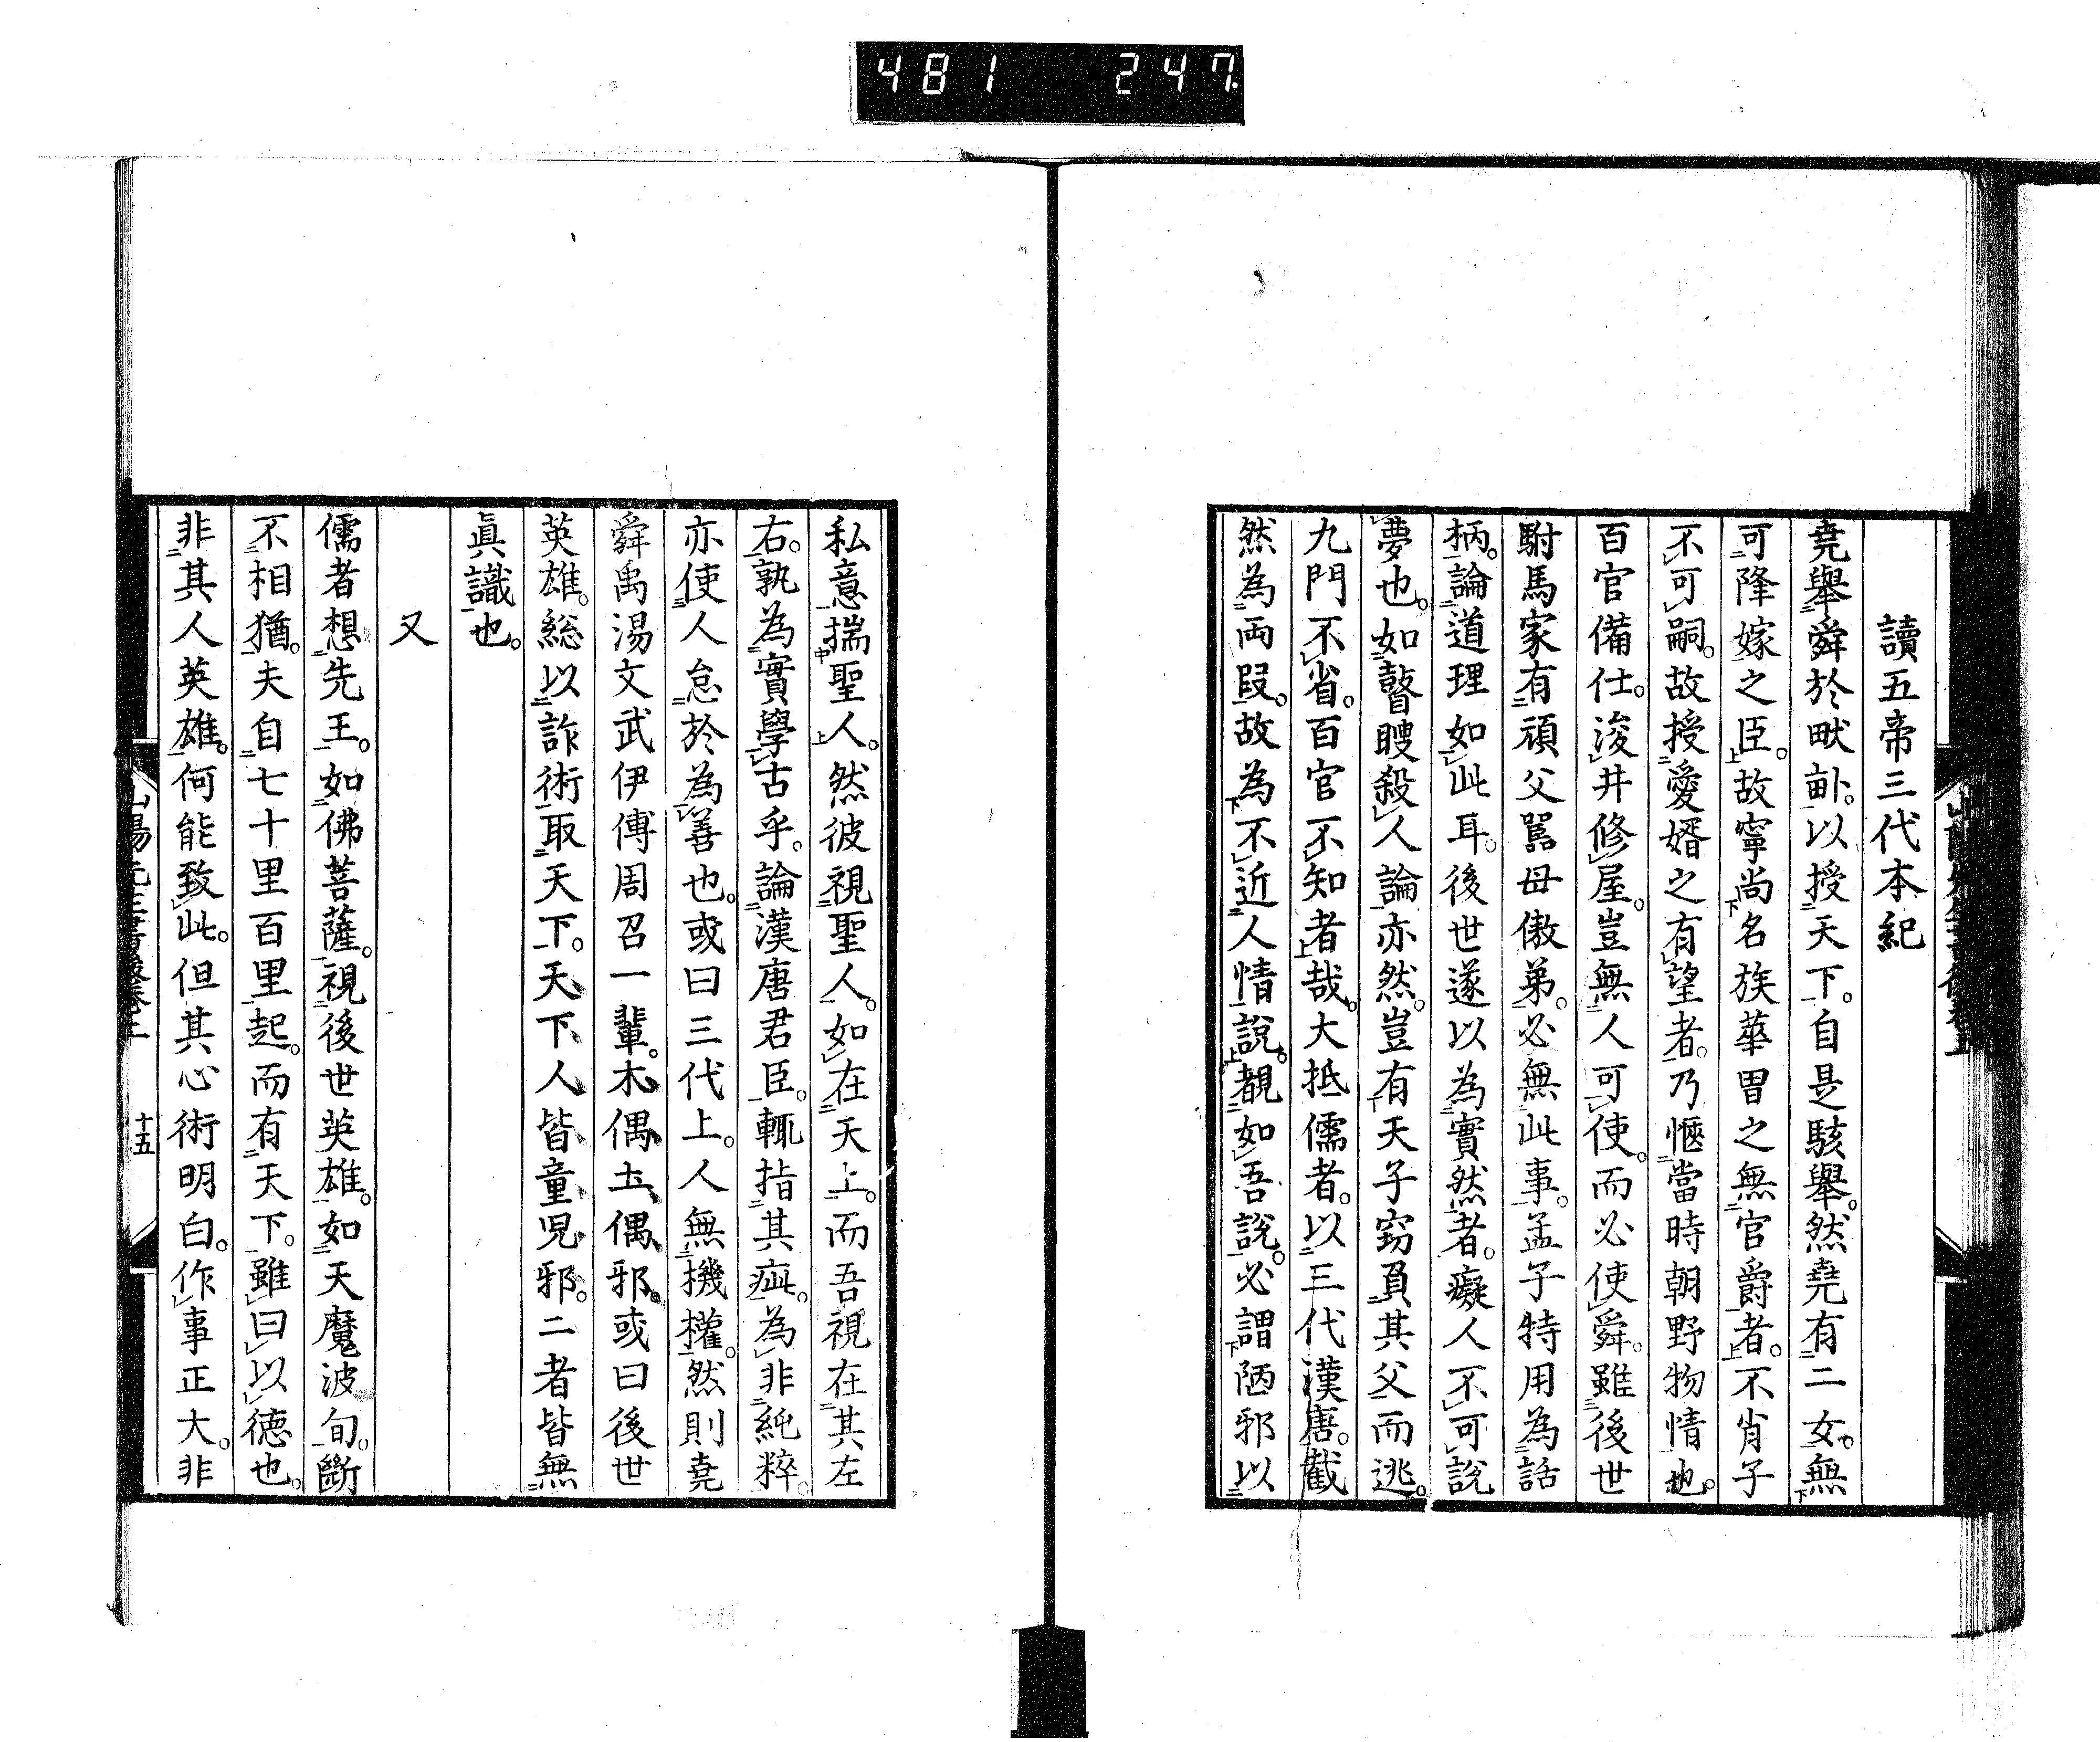 481 247
讀五帝三代本紀
堯舉舜於畎畝。以授天下。自是駭舉。然堯有二女。無
可降嫁之臣。故寧尚名族華胄之無官爵者。不肖子
不可嗣。故授愛婿之有望者。乃愜當時朝野物情也。
百官備仕。浚井修屋。豈無人可使。而必使舜。雖後世
駙馬家有頑父嚚母傲弟。必無此事。孟子特用為話
柄。論道理如此耳。後世遂以為實然者。癡人不可說
夢也。如瞽瞍殺人論亦然。豈有天子竊負其父而逃。
九門不省。百官不知者哉。大抵儒者。以三代漢唐。截
然為兩段。故為不近人情說。覩如吾說。必謂陋邪以
私意揣聖人。然彼視聖人。如在天上。而吾視在其左
右。孰為實學古乎。論漢唐君臣。輒指其疵。為非純粹。
亦使人怠於為善也。或曰三代上。人無機權。然則堯
舜禹湯文武伊傅周召一輩。木偶土偶邪。或曰後世
英雄。総以詐術取天下。天下人皆童児邪。二者皆無
眞識也。
又
儒者想先王。如佛菩薩。視後世英雄。如天魔波旬。斷
不相猶。夫自七十里百里起。而有天下。雖曰以德也。
非其人英雄。何能致此。但其心術明白。作事正大。非
十五